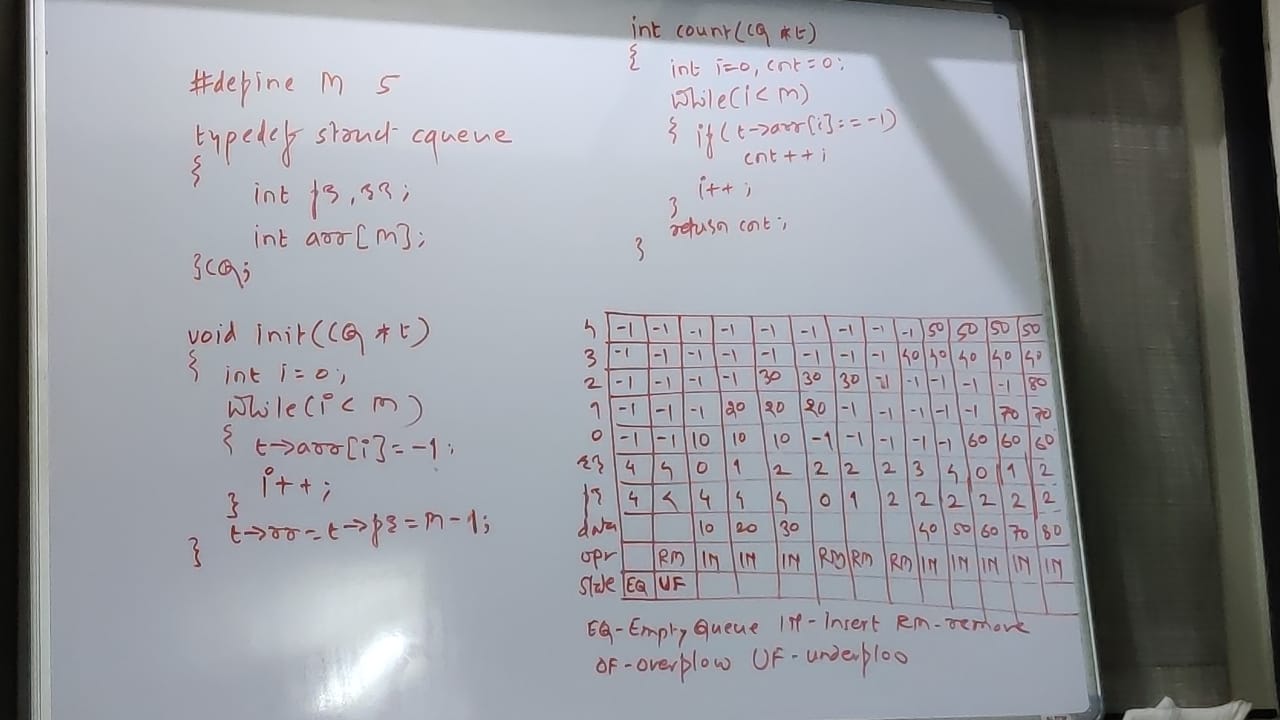 #define M 5
typedef struct cqueue
{
int fr, rr;
int arr[M];
}CQ;
void init(CQ *t)
{ int i=0;
while(i< m)
{ t->arr[i]=-1;
i++;
}
t->rr=t->fr=m-1;
}
int count(CQ *t)
{
int i=0, cnt=0;
while(i< m)
{ if(t->arr[i]==-1)
cnt++;
i++;
}
return cnt;
}
4 -1 -1 -1 -1 -1 -1 -1 -1 -1 50 50 50 50
3 -1 -1 -1 -1 -1 -1 -1 -1 40 40 40 40 40
2 -1 -1 -1 -1 30 30 30 -1 -1 -1 -1 -1 80
1 -1 -1 -1 20 20 20 -1 -1 -1 -1 -1 70 70
0 -1 -1 10 10 10 -1 -1 -1 -1 -1 60 60 60
rr 4 4 0 1 2 2 2 2 3 4 0 1 2
fr 4 4 4 4 4 0 1 2 2 2 2 2 2
data 10 20 30 40 50 60 70 80
opr RM IN IN IN RM RM RM IN IN IN IN IN
state EQ UF
EQ-Empty Queue IN-Insert RM-remove
OF-overflow UF-underfloo